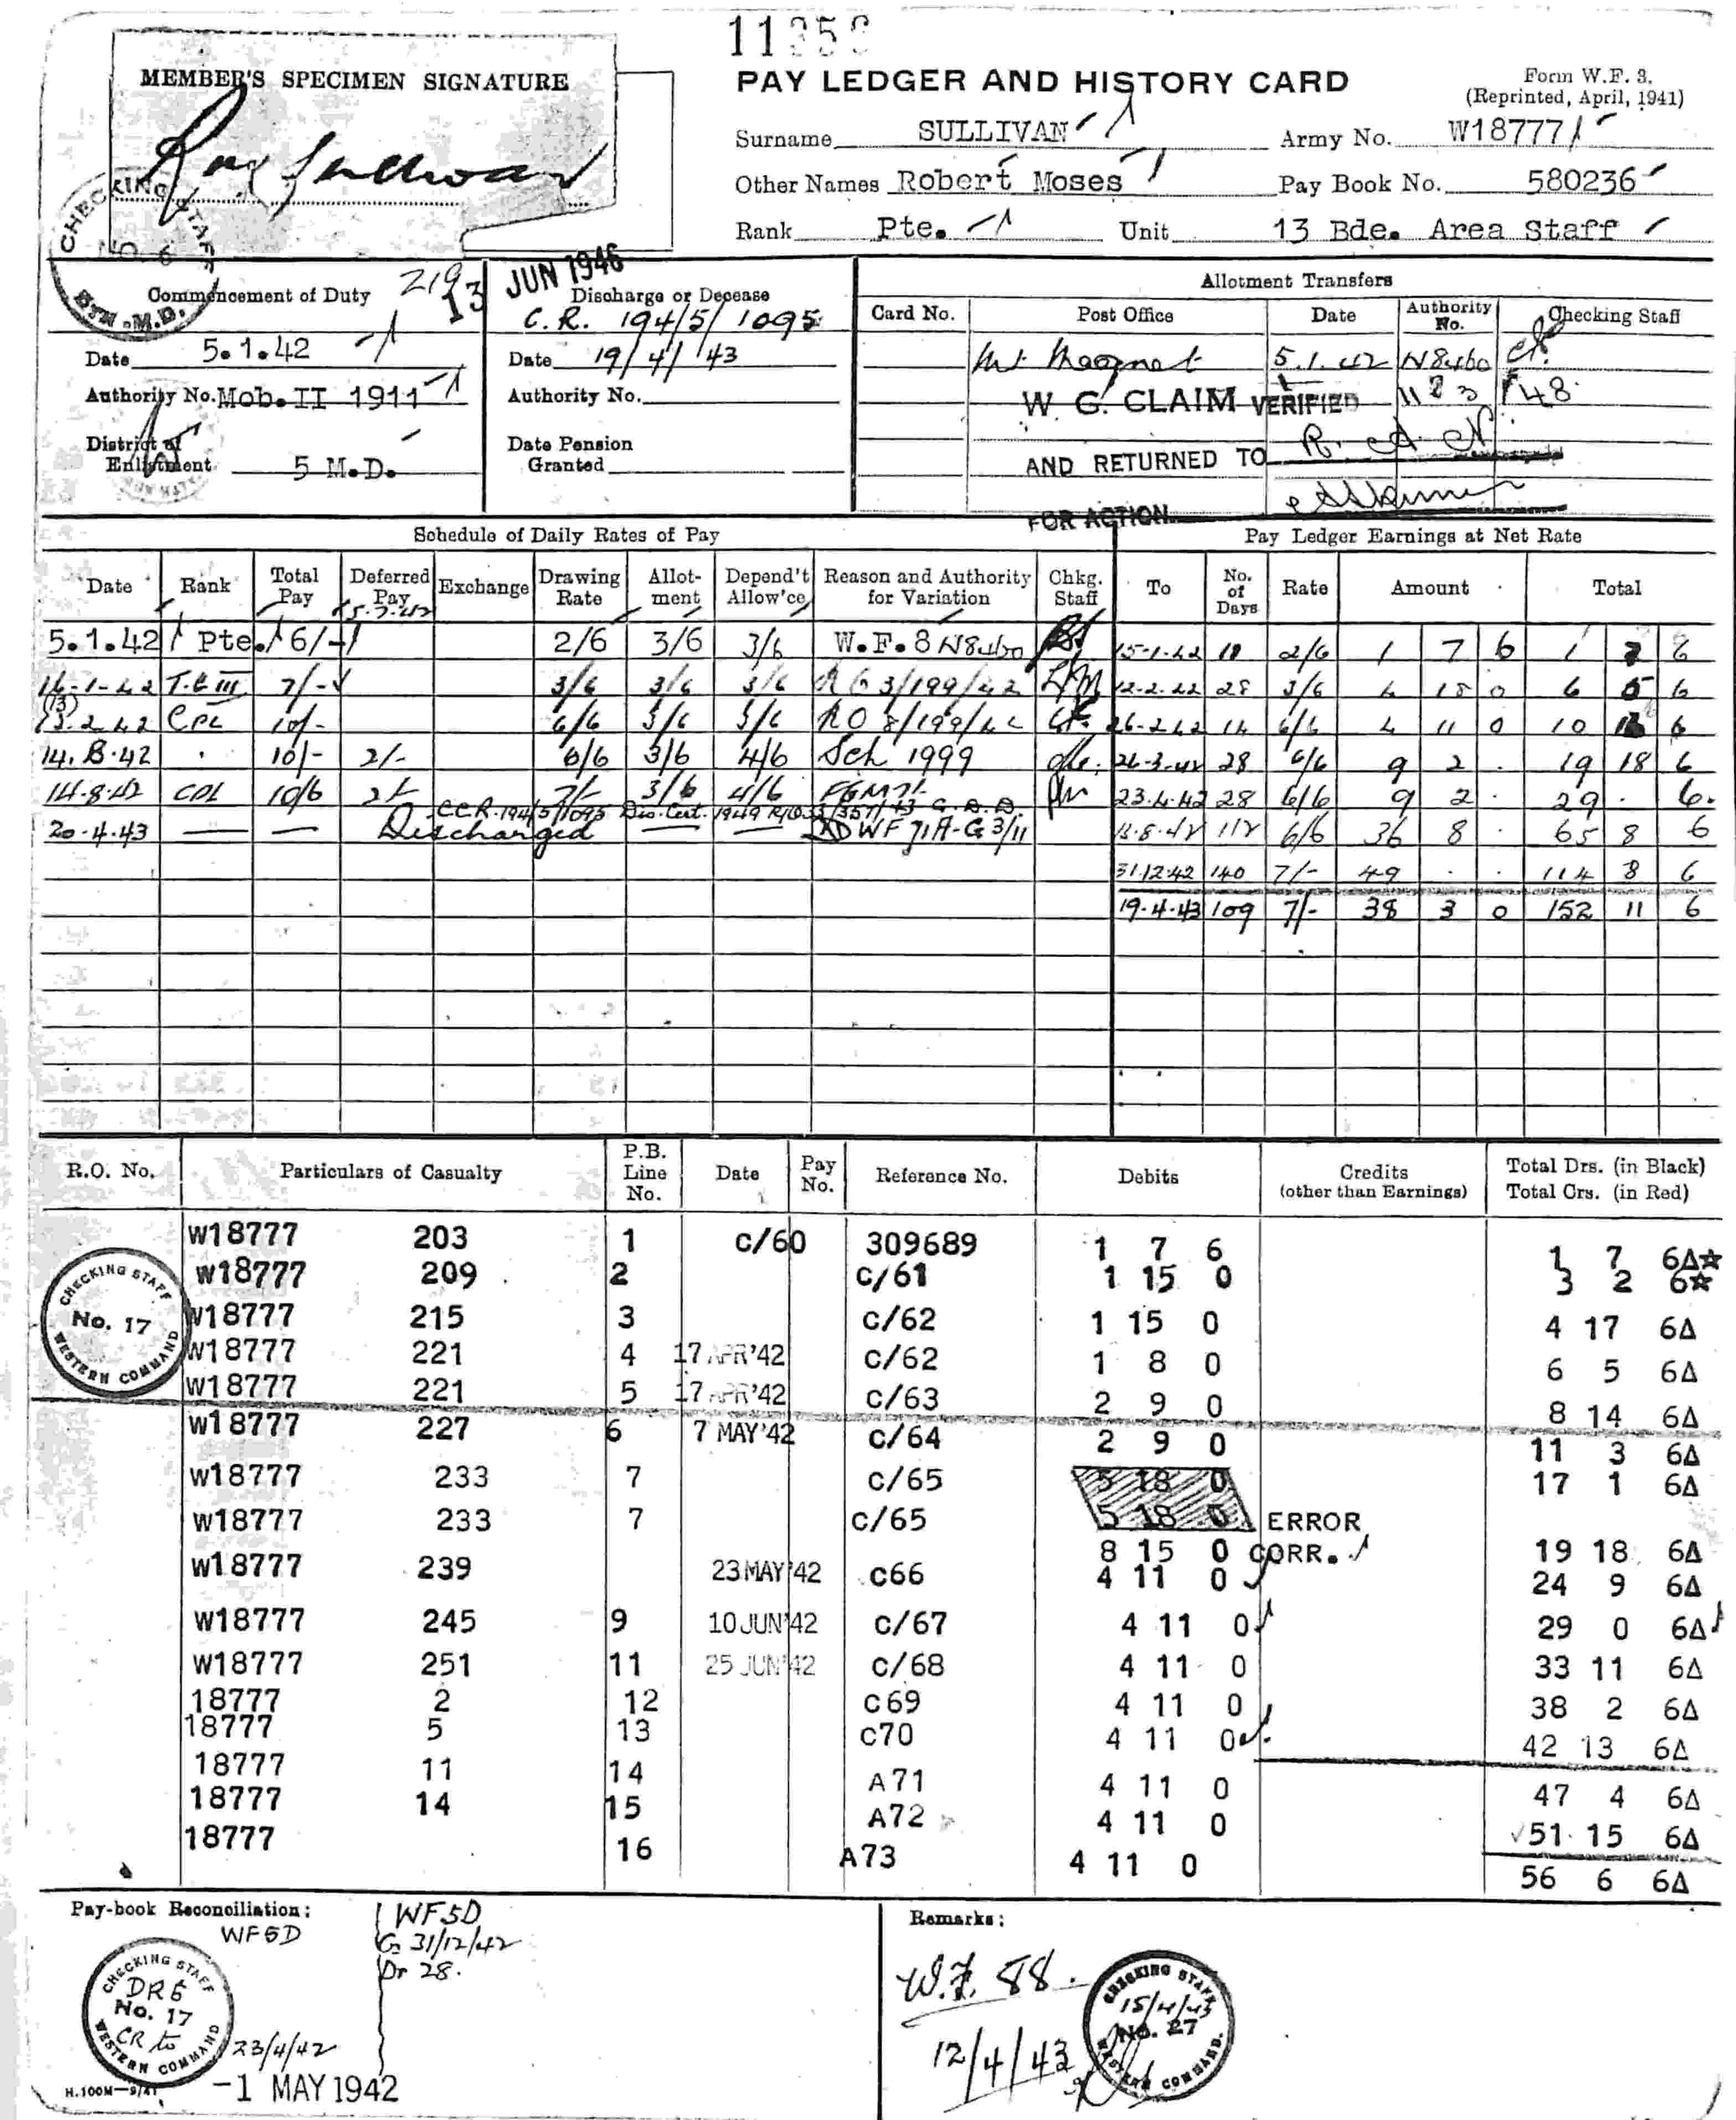 MEMBER'S SPECIMEN SIGNATURE
CHECKING STAFF
NO. 6
M.D.
PAY LEDGER AND HISTORY CARD
Form W.F. 3.
(Reprinted, April, 1941)
Surname SULLIVAN Army No. W18777
Other Names Robert Moses Pay Book No. 580236
Rank Pte. Unit 13 Bde. Area Staff
219
13 JUN 1946
Commencement of Duty
Date 5.1.42
Authority No. Mob. II 1911
District of Enlistment 5 M.D.
Discharge or Decease
C.R. 194/5/1095
Date 19/4/43
Authority No.
Date Pension Granted
Allotment Transfers
Card No. Post Office Date Authority No. Checking Staff
Mt Magnet 5.1.42 N8460
W. G. CLAIM VERIFIED 11 2 3 / 48
AND RETURNED TO
FOR ACTION
Schedule of Daily Rates of Pay
Date Rank Total Pay Deferred Pay Exchange Drawing Rate Allotment Depend't Allow'ce Reason and Authority for Variation Chkg. Staff
5.1.42 Pte. 6/- 2/6 3/6 3/6 W.F.8 N8460
16-1-42 T.G III 7/- 3/6 3/6 3/6 RO 3/199/42
13.2.42 CPL 10/- 6/6 3/6 3/6 RO 8/199/42
14.8.42 10/- 2/- 6/6 3/6 4/6 Sch 1999
14.8.42 CPL 10/6 2/- 7/- 3/6 4/6
C.C.R. 194/5/1095 Dis. Cert. 1949
20-4-43 Discharged WF 71A-G3/11
Pay Ledger Earnings at Net Rate
To No. of Days Rate Amount Total
15-1-42 11 2/6 1 7 6 1 7 6
12-2-42 28 3/6 4 18 0 6 5 6
26-2-42 14 6/6 4 11 0 10 16 6
26-3-42 28 6/6 9 2 . 19 18 6
23.4.42 28 6/6 9 2 . 29 . 6
13.8.42 112 6/6 36 8 . 65 8 6
31.12.42 140 7/- 49 . . 114 8 6
19.4.43 109 7/- 38 3 0 152 11 6
R.O. No. Particulars of Casualty P.B. Line No. Date Pay No. Reference No. Debits Credits (other than Earnings) Total Drs. (in Black) Total Crs. (in Red)
W18777 203 1 C/60 309689 1 7 6 1 7 6Δ☆
W18777 209 2 C/61 1 15 0 3 2 6☆
W18777 215 3 C/62 1 15 0 4 17 6Δ
W18777 221 4 17 APR'42 C/62 1 8 0 6 5 6Δ
W18777 221 5 17 APR'42 C/63 2 9 0 8 14 6Δ
W18777 227 6 7 MAY'42 C/64 2 9 0 11 3 6Δ
W18777 233 7 C/65 5 18 0 17 1 6Δ
W18777 233 7 C/65 5 18 0 ERROR
8 15 0 CORR. 19 18 6Δ
W18777 239 23 MAY'42 C66 4 11 0 24 9 6Δ
W18777 245 9 10 JUN'42 C/67 4 11 0 29 0 6Δ
W18777 251 11 25 JUN'42 C/68 4 11 0 33 11 6Δ
18777 2 12 C69 4 11 0 38 2 6Δ
18777 5 13 C70 4 11 0 42 13 6Δ
18777 11 14 A71 4 11 0 47 4 6Δ
18777 14 15 A72 4 11 0 51 15 6Δ
18777 16 A73 4 11 0 56 6 6Δ
CHECKING STAFF
No. 17
WESTERN COMMAND
Pay-book Reconciliation:
WF5D
WF5D
31/12/42
Dr 28.
CHECKING STAFF
No. 17
WESTERN COMMAND
23/4/42
-1 MAY 1942
H.100M—9/41
Remarks:
W.F. 88.
12/4/43
CHECKING STAFF
15/4/43
No. 27
WESTERN COMMAND.